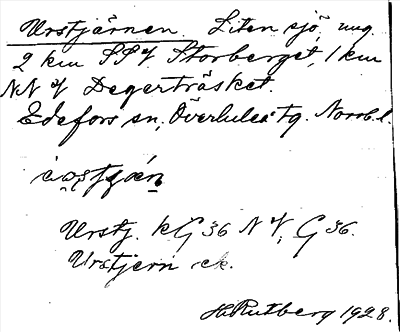 Urstjärnen. Liten sjö, ung.
2 km SSV Storberget, 1 km
NNV Degerträsket.
Edefors sn, Överluleå tg. Norrb. l.
Urstj. kG 36 NV, G 36.
Urstjern ek.
H. Rutberg 1928.